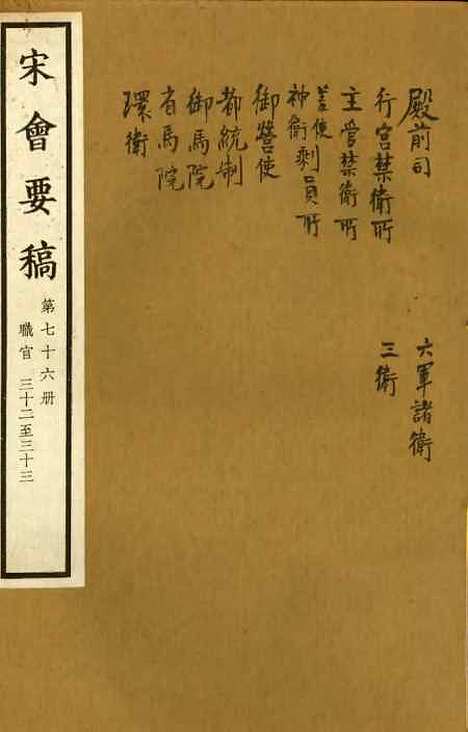 殿前司
行宫禁衛所
主管禁衛所
差使
神衛剩員所
御營使
都統制
御馬院
省馬院
環衛
六軍諸衛
三衛
宋會要稿
第七十六册
職官 三十二至三十三